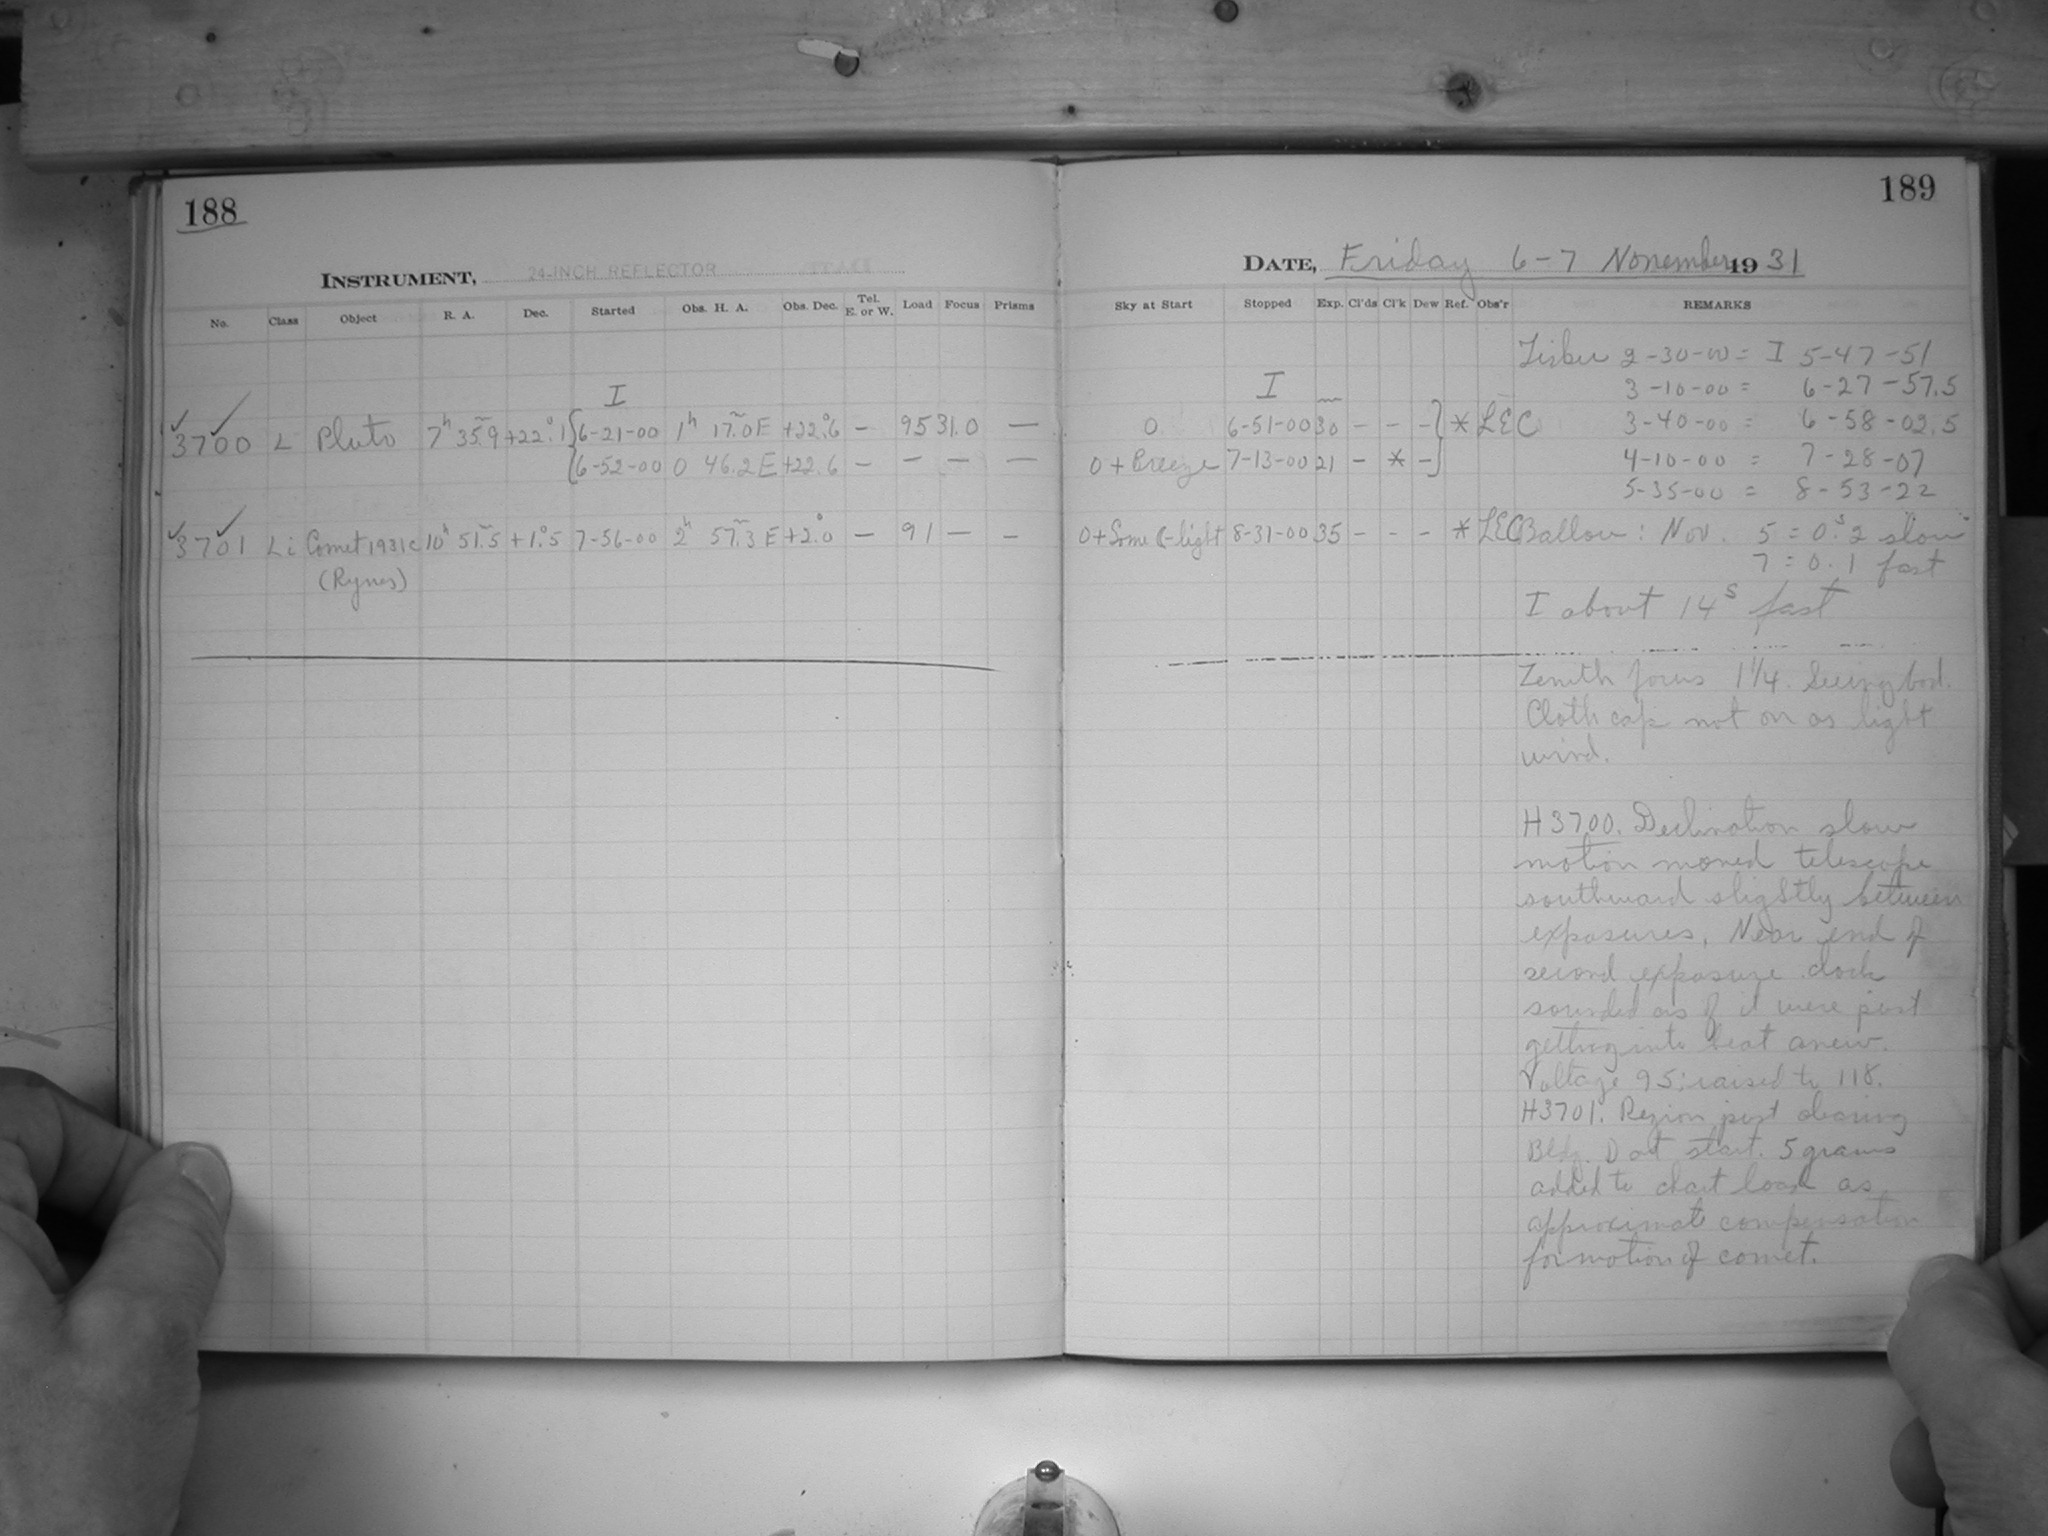 188
INSTRUMENT, 24-INCH REFLECTOR
No. Class Object R. A. Dec. Started Obs. H. A. Obs. Dec. Tel. E. or W. Load Focus Prisms
I
3700 L Pluto 7h 35m.9 +22°.1 6-21-00 1h 17m.0 E +22°.6 — 95 31.0 —
6-52-00 0 46.2 E +22.6 — — — —
3701 Li Comet 1931c 10h 51m.5 +1°.5 7-56-00 2h 57m.3 E +2°.0 — 91 — —
(Rynes)
189
DATE, Friday 6-7 November 1931
Sky at Start Stopped Exp. Cl'ds Cl'k Dew Ref. Obs'r REMARKS
I m
0 6-51-00 30 - - - * LEC
0 + Breeze 7-13-00 21 - * -
0 + Some ☾-light 8-31-00 35 - - - * LEC
2-30-00 = I 5-47-51
3-10-00 = 6-27-57.5
3-40-00 = 6-58-02.5
4-10-00 = 7-28-07
5-35-00 = 8-53-22
Ballou: Nov. 5 = 0s.2 slow
7 = 0.1 fast
I about 14s fast
Zenith focus 1 1/4. Seeing bad.
Cloth cap not on as light
wind.
H3700. Declination slow
motion moved telescope
southward slightly between
exposures. Near end of
second exposure clock
sounded as if it were just
getting into beat anew.
Voltage 95; raised to 118.
H3701. Region just clearing
Bldg. D at start. 5 grams
added to chart load as
approximate compensation
for motion of comet.